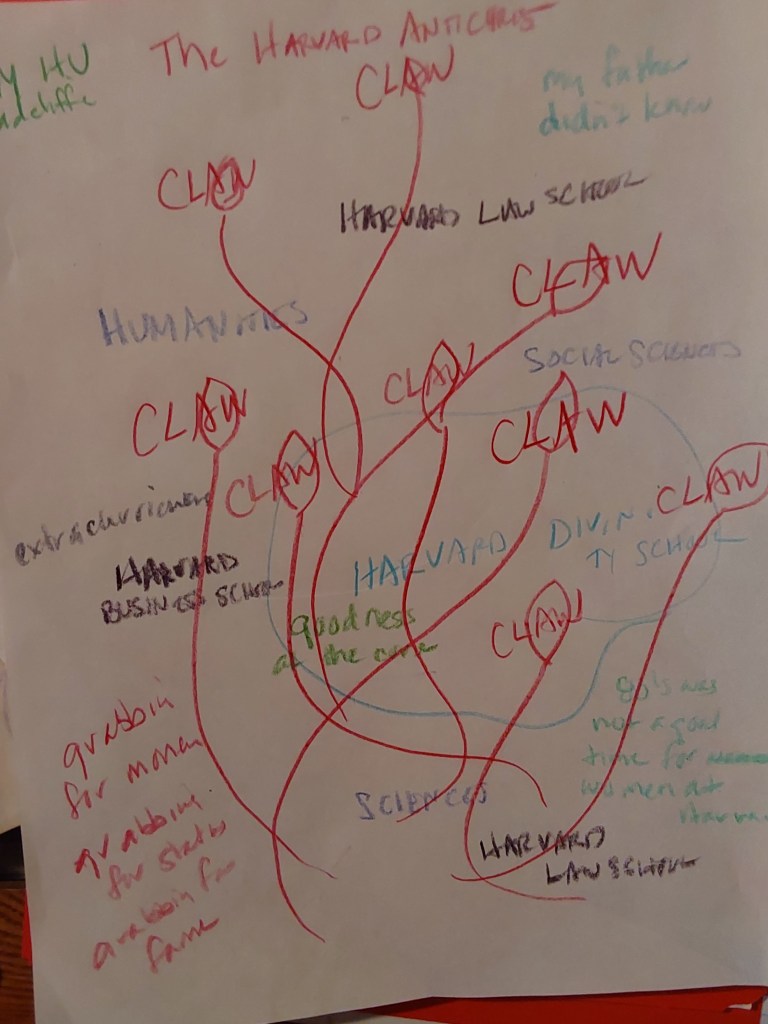 The HARVARD ANTICHRIST
HU
CLAW
my father
didn't know
CLAW
HARVARD LAW SCHOOL
CLAW
HUMANITIES
SOCIAL SCIENCES
CLAW
CLAW
CLAW
CLAW
CLAW
HARVARD
BUSINESS SCHOOL
HARVARD DIVINI
TY SCHOOL
goodness
at the core
CLAW
80's was
not a good
time for
women at
grabbin
for money
grabbing
for status
grabbin for
fame
SCIENCES
HARVARD
LAW SCHOOL